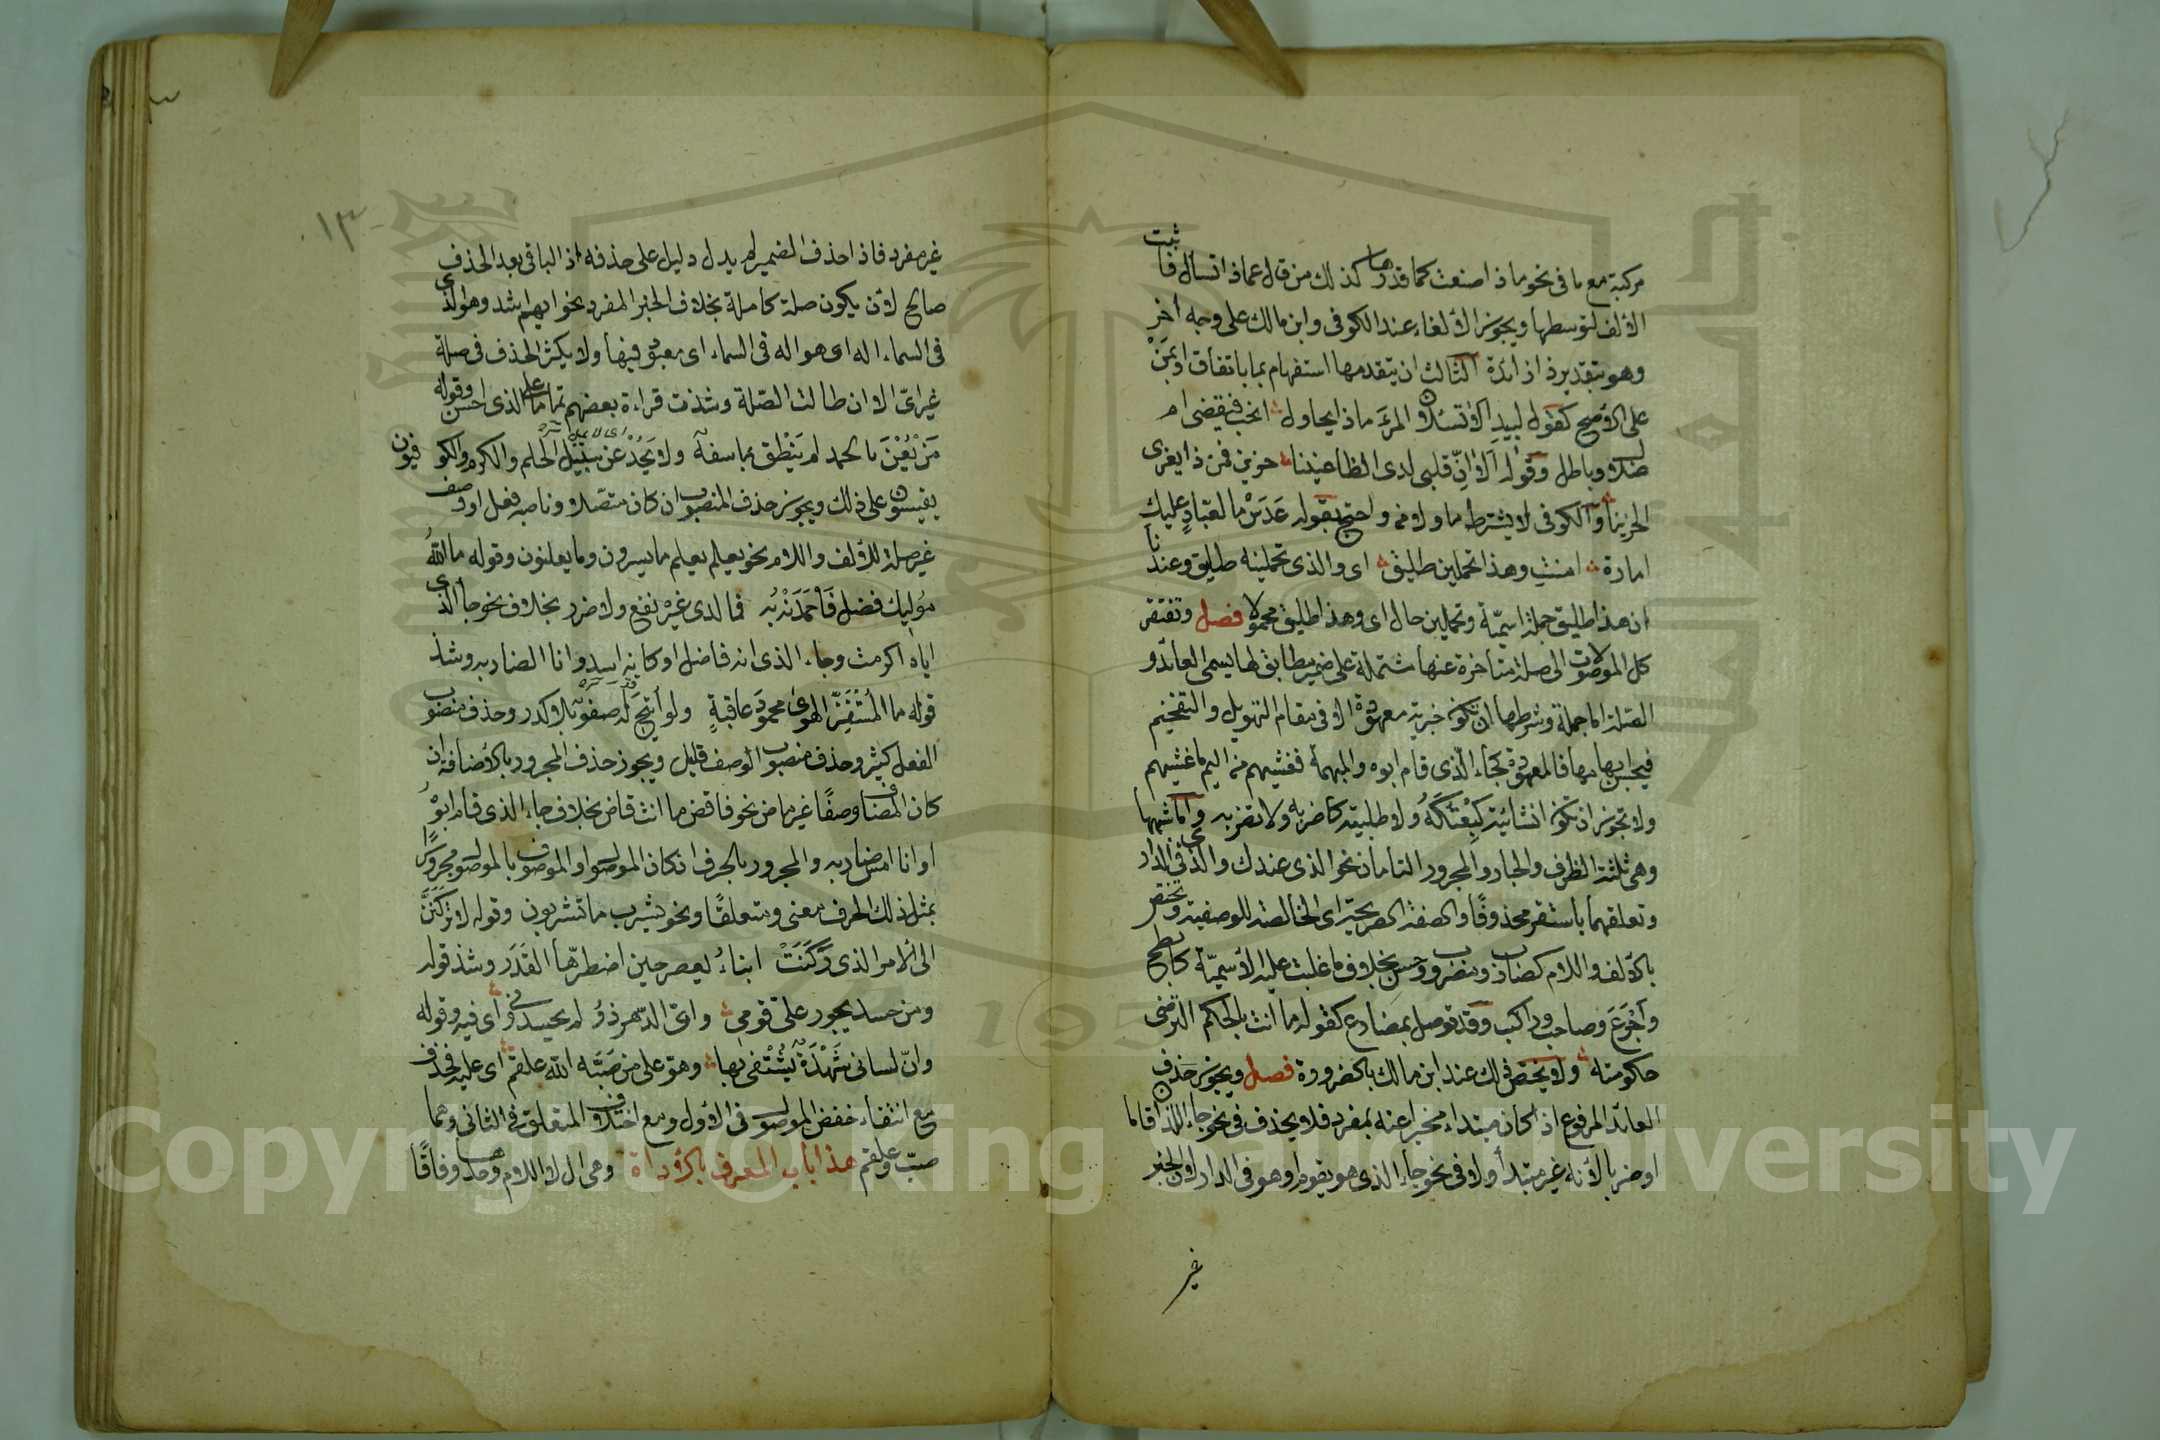 مركبة مع ما في نحو ماذا صنعت كما قدرها كذلك من قال عماذا تسأل فأثبت
الألف لتوسطها ويجوز الألغاء عند الكوفي وابن مالك على وجه أخر
وهو بتقدير ذا زائدة الثالث ان يتقدمها استفهام بما باتفاق او بمَنْ
على الأصح كقول لبيد الا تسئلان المرءَ ماذا يحاول انحب فيقضى ام
ضلال وباطل وقوله الا إنّ قلبى لدى الظاعنينا حزين فمن ذا يعزى
الحزينا والكوفى لا يشترط ما ولا من واحتج بقوله عَدَسْ ما لعبّادٍ عليكِ
امارة امنتِ وهذا تحملين طليق اى والذى تحملينه طليق وعندنا
ان هذا طليق جملة اسميّة وتحملين حال اى وهذا طليق محمولا فصل وتفتقر
كل الموصولات الى صلة متأخرة عنها مشتملة على ضمير مطابق لها يسمى العائد و
الصّلة اما جملة وشرطها ان تكون خبرية معهودة الا فى مقام التهويل والتفخيم
فيحسن ابهامها فالمعهودة كجاء الّذى قام ابوه والمبهمة فغشيهم من اليم ما غشيهم
ولا تجوز ان تكون انشائية كبِعْتُكَهُ ولا طلبية كاضربه ولا تضربه واما شبهها
وهى ثلثة الظرف والجار والمجرور التامان نحو الذى عندك والذى فى الدار
وتعلقهما باستقر محذوفًا والصفة الصريحة اى الخالصة للوصفية وتختص
بالألف واللام كضارب ومضروب وحسن بخلاف ما غلبت عليه الأسمية كابطح
وأجْرَعَ وصاحب وراكب وقد توصل بمضارع كقوله ما انت بالحكم الترضى
حكومته ولا يختص ذلك عند ابن مالك بالضرورة فصل ويجوز حذف
العائد المرفوع اذا كان مبتداء مخبرا عنه بمفرد فلا يحذف فى نحو جاء اللذان قاما
او ضربا لأنه غير مبتدأ ولا فى نحو جاء الذى هو يقوم او هو فى الدار لان الخبر
غير
١٣
غير مفرد فاذا حذف الضمير لم يدل دليل على حذفه اذ الباقى بعد الحذف
صالح لأن يكون صلة كاملة بخلاف الخبر المفرد نحو ايهم اشد وهو الذى
فى السماء اله اى هو اله فى السماء اى معبود فيها ولا يكثر الحذف فى صلة
غير اىّ الا ان طالت الصّلة وشذت قراءة بعضهم تماما على الذى احسن وقوله
مَنْ يُعْنَ بالحمد لم يَنْطِق بما سفهٌ ولا يَحِدْ عن سبيل الحلم والكرم والكوفيون
يقيسون على ذلك ويجوز حذف المنصوب ان كان متصلا وناصبه فعل او وصف
غير صلة للألف واللام نحو يعلم ما يسرون وما يعلنون وقوله ما اللهُ
موليك فضل فَاحْمَدَنْهُ به فما لدى غيره نفع ولا ضرر بخلاف نحو جاء الذى
اياه اكرمت وجاء الذى انه فاضل او كانه اسد وانا الضاربه وشذ
قوله ما المُسْتَفِزّ الهوى محمودَ عاقبةٍ ولو أُتيحَ له صفوٌ بلا كدر وحذف منصوب
الفعل كثير وحذف منصوب الوصف قليل ويجوز حذف المجرور بالأضافة ان
كان المضاف وصفًا غير ماض نحو فاقض ما انت قاض بخلاف جاء الذى قام ابوهُ
او انا امس ضاربه والمجرور بالحرف ان كان الموصول او الموصوف بالموصول مجرورًا
بمثل ذلك الحرف معنى ومتعلقًا ونحو يشرب مما تشربون وقوله لا تركَنَنَّ
الى الأمر الذى ركَنَتْ ابناءُ يعصر حين اضطرّها القَدَر وشذ قوله
ومن حسد يجور علىّ قومى واىّ الدّهر ذو لم يحسدونى أى فيه وقوله
وانّ لسانى شَهْدَةٌ يُشْتفى بها وهوّ على من صَبَّه الله علقم اى عليه فحذف
مع انتفاء خفض الموصول فى الأول ومع اختلاف المتعلق فى الثانى وهما
صبّ وعلقم هذا باب المعرف بالأداة وهى ال لا اللام وحدها وفاقًا